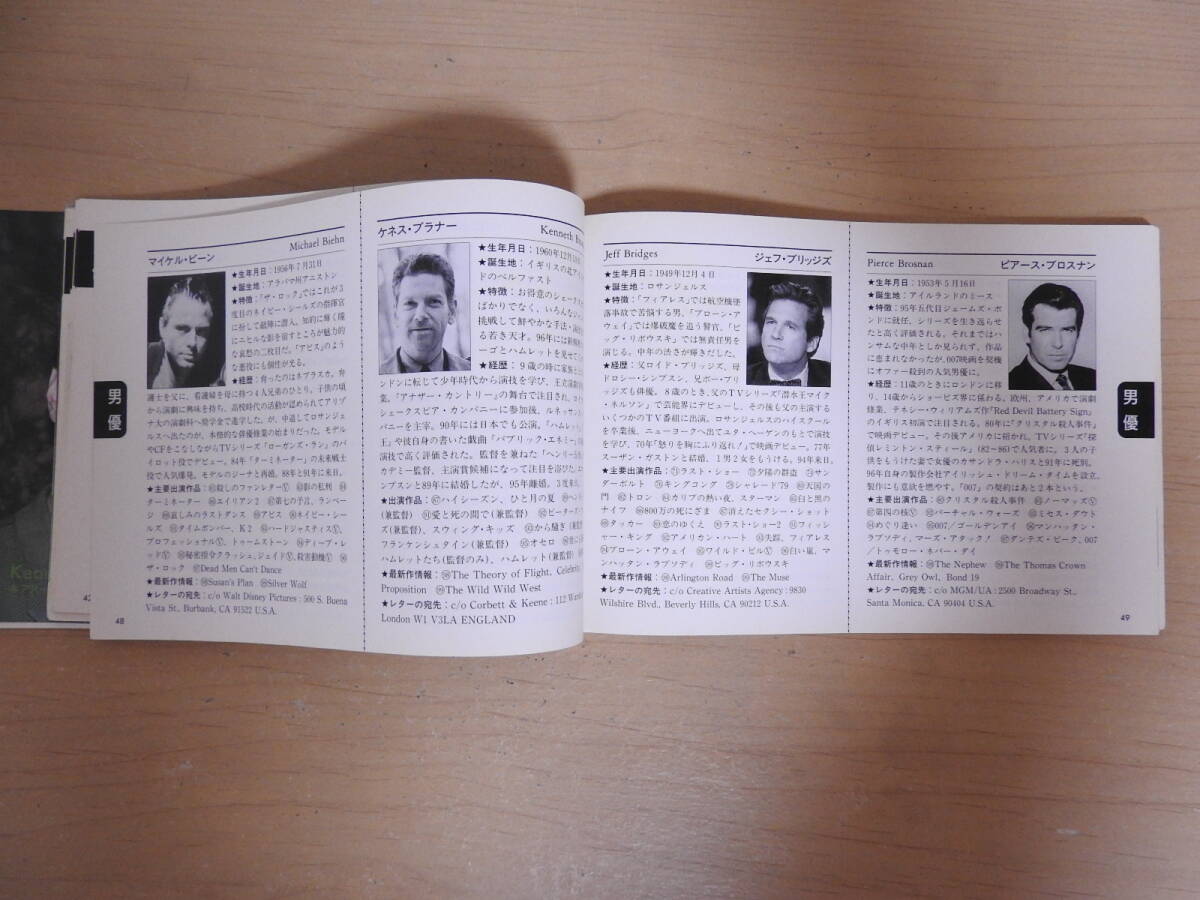 Michael Biehn
マイケル・ビーン
★生年月日：1956年7月31日
★誕生地：アラバマ州アニストン
★特徴：「ザ・ロック」ではこれが3
度目のネイビー・シールズの指揮官
に扮して敵陣に潜入。知的に輝く瞳
にニヒルな影を宿すところが魅力的
な哀愁の二枚目だ。「アビス」のよう
な悪役にも個性がでる。
★経歴：育ったのはネブラスカ。弁
護士を父に、看護婦を母に持つ4人兄弟のひとり。子供の頃
から演劇に興味を持ち、高校時代の活動が認められてアリゾ
ナ大の演劇科へ奨学金で進学した。が、中退してロサンジェ
ルスへ出たのが、本格的な俳優修業の始まりだった。モデル
やCFをこなしながらTVシリーズ「ローガンズ・ラン」のパ
イロット役でデビュー。84年「ターミネーター」の未来戦士
役で人気爆発。モデルのジーナと再婚。88年と91年に来日。
★主要出演作品：殺しのファンレター 影の私刑
ターミネーター エイリアン2 第七の予言、ランペー
ジ 哀しみのラストダンス アビス ネイビー・シー
ルズ タイムボンバー、K2 ハードジャスティス、
プロフェッショナル、トゥームストーン ディープ・レ
ッド 秘密指令クラッシュ、ジェイド、殺害動機
ザ・ロック Dead Men Can't Dance
★最新作情報：Susan's Plan Silver Wolf
★レターの宛先：c/o Walt Disney Pictures : 500 S. Buena
Vista St., Burbank, CA 91522 U.S.A.
48
男優
ケネス・ブラナー
Kenneth
★生年月日：1960年12月10
★誕生地：イギリスの北アイ
ドのベルファスト
★特徴：お得意のシェークス
ばかりでなく、いろんなジャ
挑戦して鮮やかな手法・演
る若き天才。96年には新解
ーゴとハムレットを見せて
★経歴：9歳の時に家族と
ンドンに転じて少年時代から演技を学び、王立演劇
業。「アナザー・カントリー」の舞台で注目され、ロイ
シェークスピア・カンパニーに参加後、ルネッサン
パニーを主宰。90年には日本でも公演。「ハムレット
王」や彼自身の書いた戯曲「パブリック・エネミー」の
演技で高く評価された。監督を兼ねた「ヘンリー
カデミー監督、主演賞候補になって注目を浴びた。エ
ンプスンと89年に結婚したが、95年離婚。3度来日
★出演作品：ハイシーズン、ひと月の夏 ヘン
(兼監督) 愛と死の間で(兼監督) ピーターズ・
ズ(兼監督)、スウィング・キッズ から騒ぎ(兼監督
フランケンシュタイン(兼監督) オセロ 世に
ハムレットたち(監督のみ)、ハムレット(兼監督)
★最新作情報：The Theory of Flight, Celebrity
Proposition The Wild Wild West
★レターの宛先：c/o Corbett & Keene : 112 Ward
London W1 V3LA ENGLAND
Jeff Bridges
ジェフ・ブリッジズ
★生年月日：1949年12月4日
★誕生地：ロサンジェルス
★特徴：「フィアレス」では航空機墜
落事故で苦悩する男、「ブローン・ア
ウェイ」では爆破魔を追う警官、「ビ
ッグ・リボウスキ」では無責任男を
演じる。中年の渋さが輝きだした。
★経歴：父ロイド・ブリッジズ、母
ドロシー・シンプスン、兄ボー・ブリ
ッジズも俳優。8歳のとき、父のTVシリーズ「潜水王マイク
・ネルソン」で芸能界にデビューし、その後も父の主演する
いくつかのTV番組に出演。ロサンジェルスのハイスクール
を卒業後、ニューヨークへ出てユタ・ヘーゲンのもとで演技
を学び、70年「怒りを胸にふり返れ！」で映画デビュー。77年
スーザン・ガストンと結婚。1男2女をもうける。94年来日。
★主要出演作品：ラスト・ショー 夕陽の群盗 サン
ダーボルト キングコング シャレード'79 天国の
門 トロン カリブの熱い夜、スターマン 白と黒の
ナイフ 800万の死にざま 消えたセクシー・ショット
タッカー 恋のゆくえ ラスト・ショー2 フィッシ
ャー・キング アメリカン・ハート 失踪、フィアレス
ブローン・アウェイ ワイルド・ビル 白い嵐、マ
ンハッタン・ラプソディ ビッグ・リボウスキ
★最新作情報：Arlington Road The Muse
★レターの宛先：c/o Creative Artists Agency : 9830
Wilshire Blvd., Beverly Hills, CA 90212 U.S.A.
Pierce Brosnan
ピアース・ブロスナン
★生年月日：1953年5月16日
★誕生地：アイルランドのミース
★特徴：95年五代目ジェームズ・ボ
ンドに就任、シリーズを生き返らせ
たと高く評価される。それまではハ
ンサムな中年としか見られず、作品
に恵まれなかったが、007映画を契機
にオファー殺到の人気男優に。
★経歴：11歳のときにロンドンに移
り、14歳からショービス界に係わる。欧州、アメリカで演劇
修業。テネシー・ウィリアムズ作「Red Devil Battery Sign」
のイギリス初演で注目される。80年に「クリスタル殺人事件」
で映画デビュー。その後アメリカに招かれ、TVシリーズ「探
偵レミントン・スティール」(82～86)で人気者に。3人の子
供をもうけた妻で女優のカサンドラ・ハリスと91年に死別。
96年自身の製作会社アイリッシュ・ドリーム・タイムを設立。
製作にも意欲を燃やす。「007」の契約はあと2本という。
★主要出演作品：クリスタル殺人事件 ノーマッズ
第四の核 バーチャル・ウォーズ ミセス・ダウト
めぐり逢い 007／ゴールデンアイ マンハッタン・
ラプソディ、マーズ・アタック！ ダンテズ・ピーク、007
／トゥモロー・ネバー・ダイ
★最新作情報：The Nephew The Thomas Crown
Affair, Grey Owl, Bond 19
★レターの宛先：c/o MGM/UA : 2500 Broadway St.,
Santa Monica, CA 90404 U.S.A.
49
男優